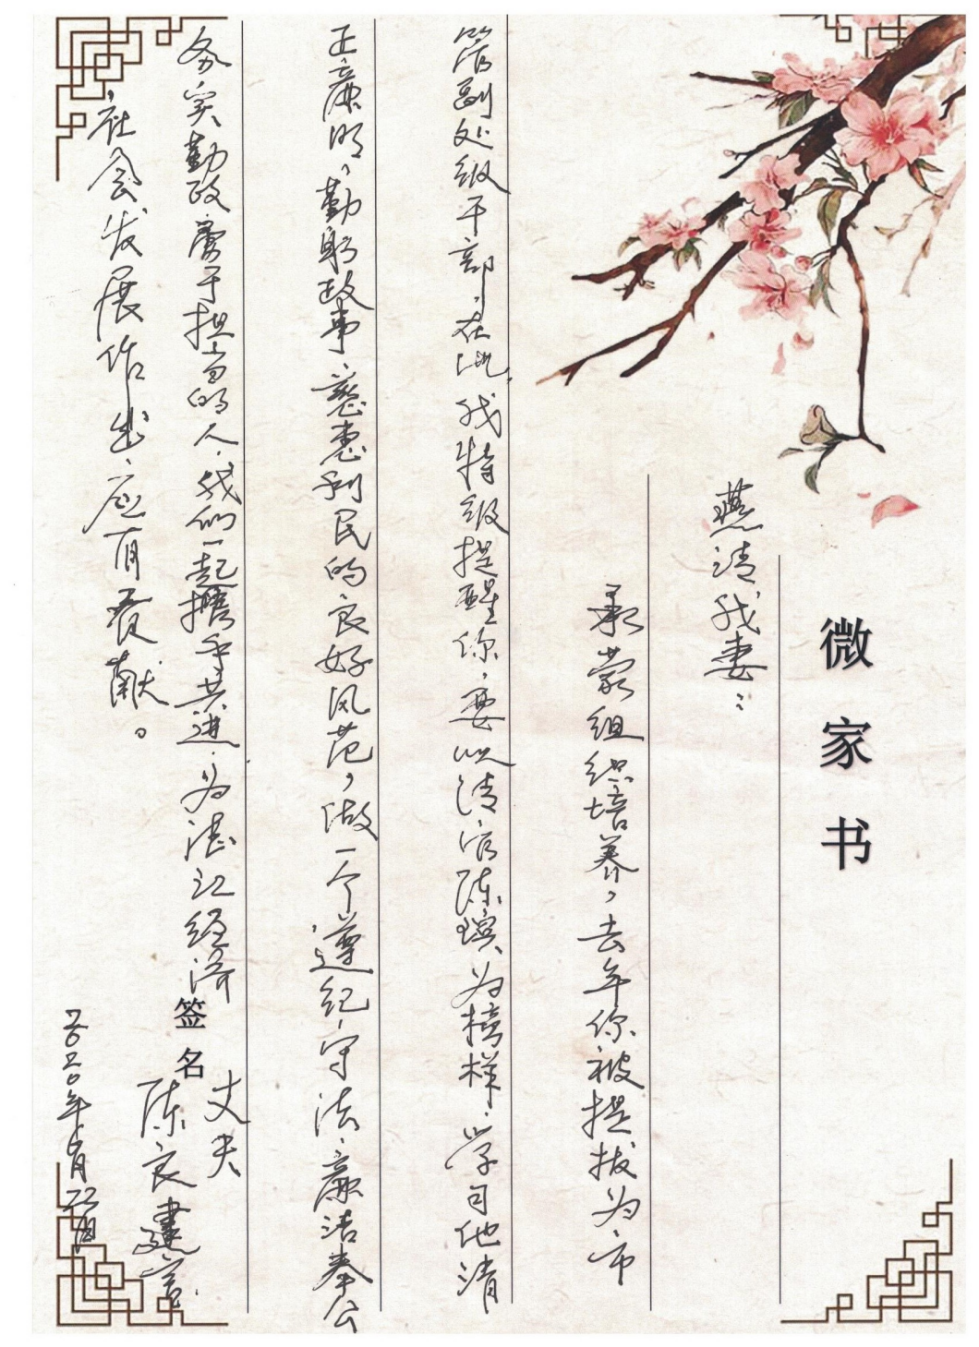 微家书
燕清我妻：
承蒙组织培养，去年你被提拔为市
管副处级干部，在此，我特级提醒你，要以清官陈瑸为榜样，学习他清
正廉明，勤躬政事，惠利民的良好风范，做一个遵纪守法，廉洁奉公
务实勤政勇于担当的人，我们一起携手共进，为湛江经济
社会发展作出应有贡献。
签名
丈夫
陈良
二〇二〇年 月22日